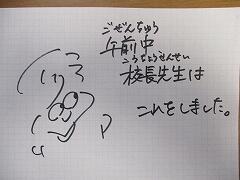 ごぜんちゅう
午前中
こうちょうせんせい
校長先生は
これをしました。